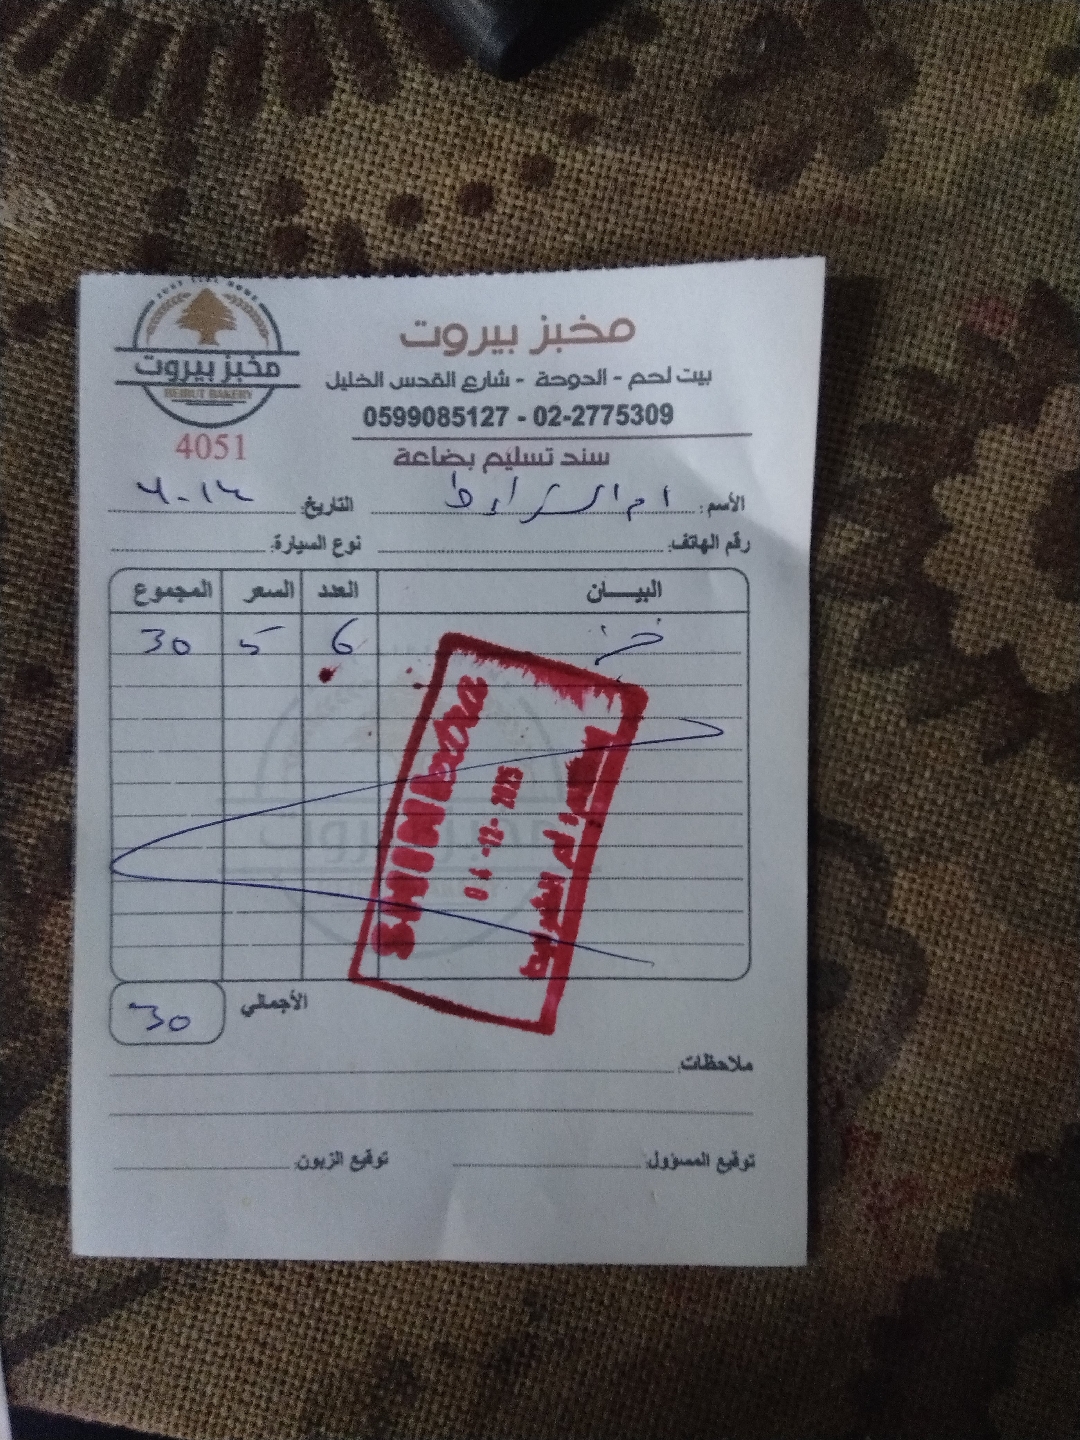 JUST LIKE HOME
مخبز بيروت
BEIRUT BAKERY
4051
مخبز بيروت
بيت لحم - الدوحة - شارع القدس الخليل
0599085127 - 02-2775309
سند تسليم بضاعة
الأسم: ام الشرايط
التاريخ:
رقم الهاتف: نوع السيارة:
البيـــان العدد السعر المجموع
خبز 6 5 30
SHINI extra
مخبز بيروت
الأجمالي 30
ملاحظات
توقيع المسؤول: توقيع الزبون: